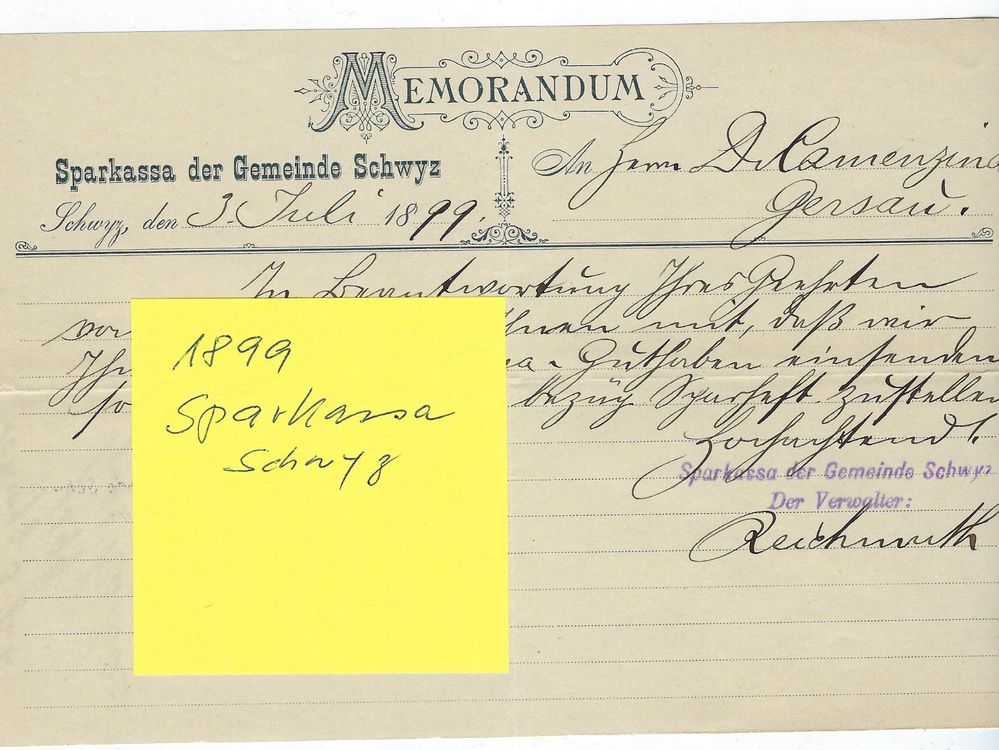 MEMORANDUM
Sparkassa der Gemeinde Schwyz
An Herrn D. Camenzind
Schwyz, den 3. Juli 1899.
Gersau.
In Beantwortung Ihres Geehrten
vor Ihnen mit, daß wir
Ihr Guthaben einsenden
so bezüg Sparheft zustellen
Hochachtend!
Sparkassa der Gemeinde Schwyz
Der Verwalter:
Reichmuth
1899
Sparkassa
Schwyz